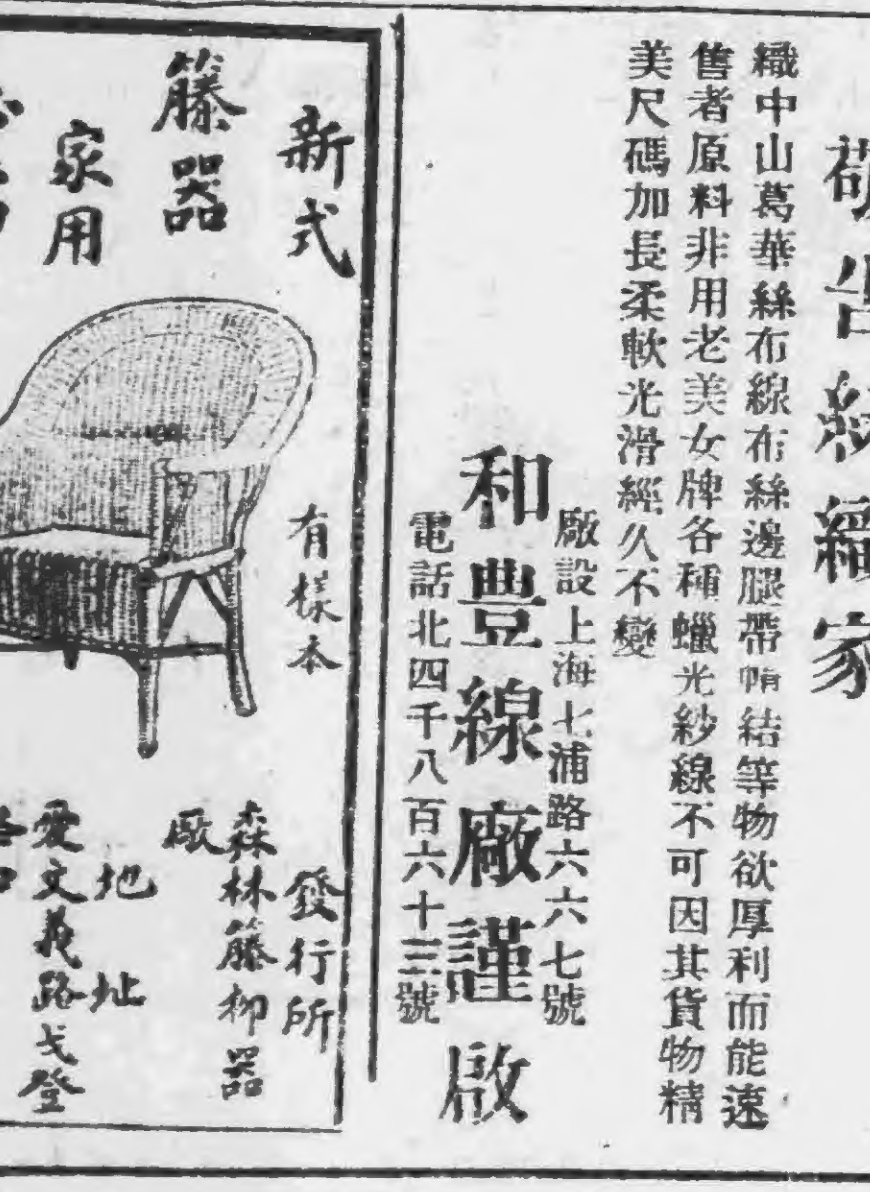 敬告紡織家
織中山葛華絲布線布絲邊腿帶帩結等物欲厚利而能速
售者原料非用老美女牌各種蠟光紗線不可因其貨物精
美尺碼加長柔軟光滑經久不變
廠設上海七浦路六六七號
和豊線廠謹啟
電話北四千八百六十三號
新式
籐器
家用
有樣本
發行所
森林籐柳器
廠
地址
愛文義路戈登